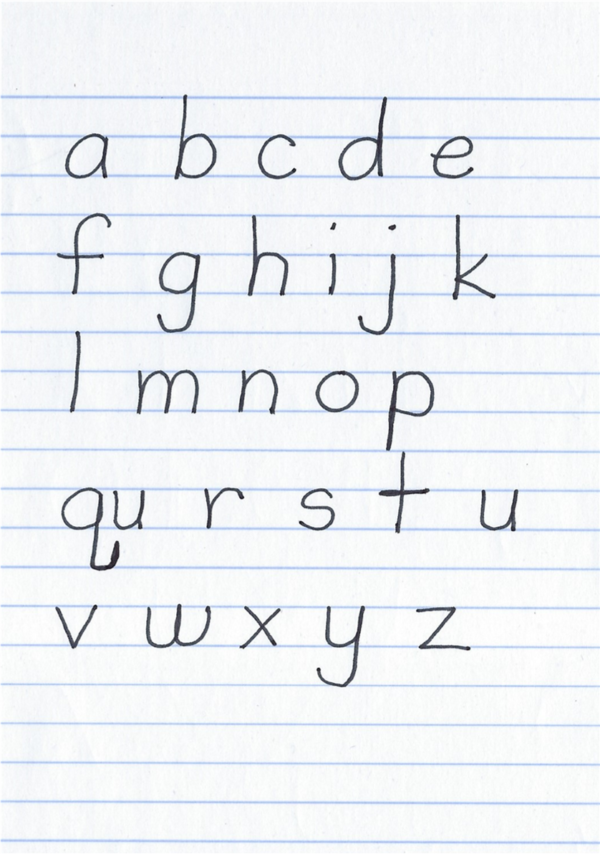 a b c d e
f g h i j k
l m n o p
qu r s t u
v w x y z